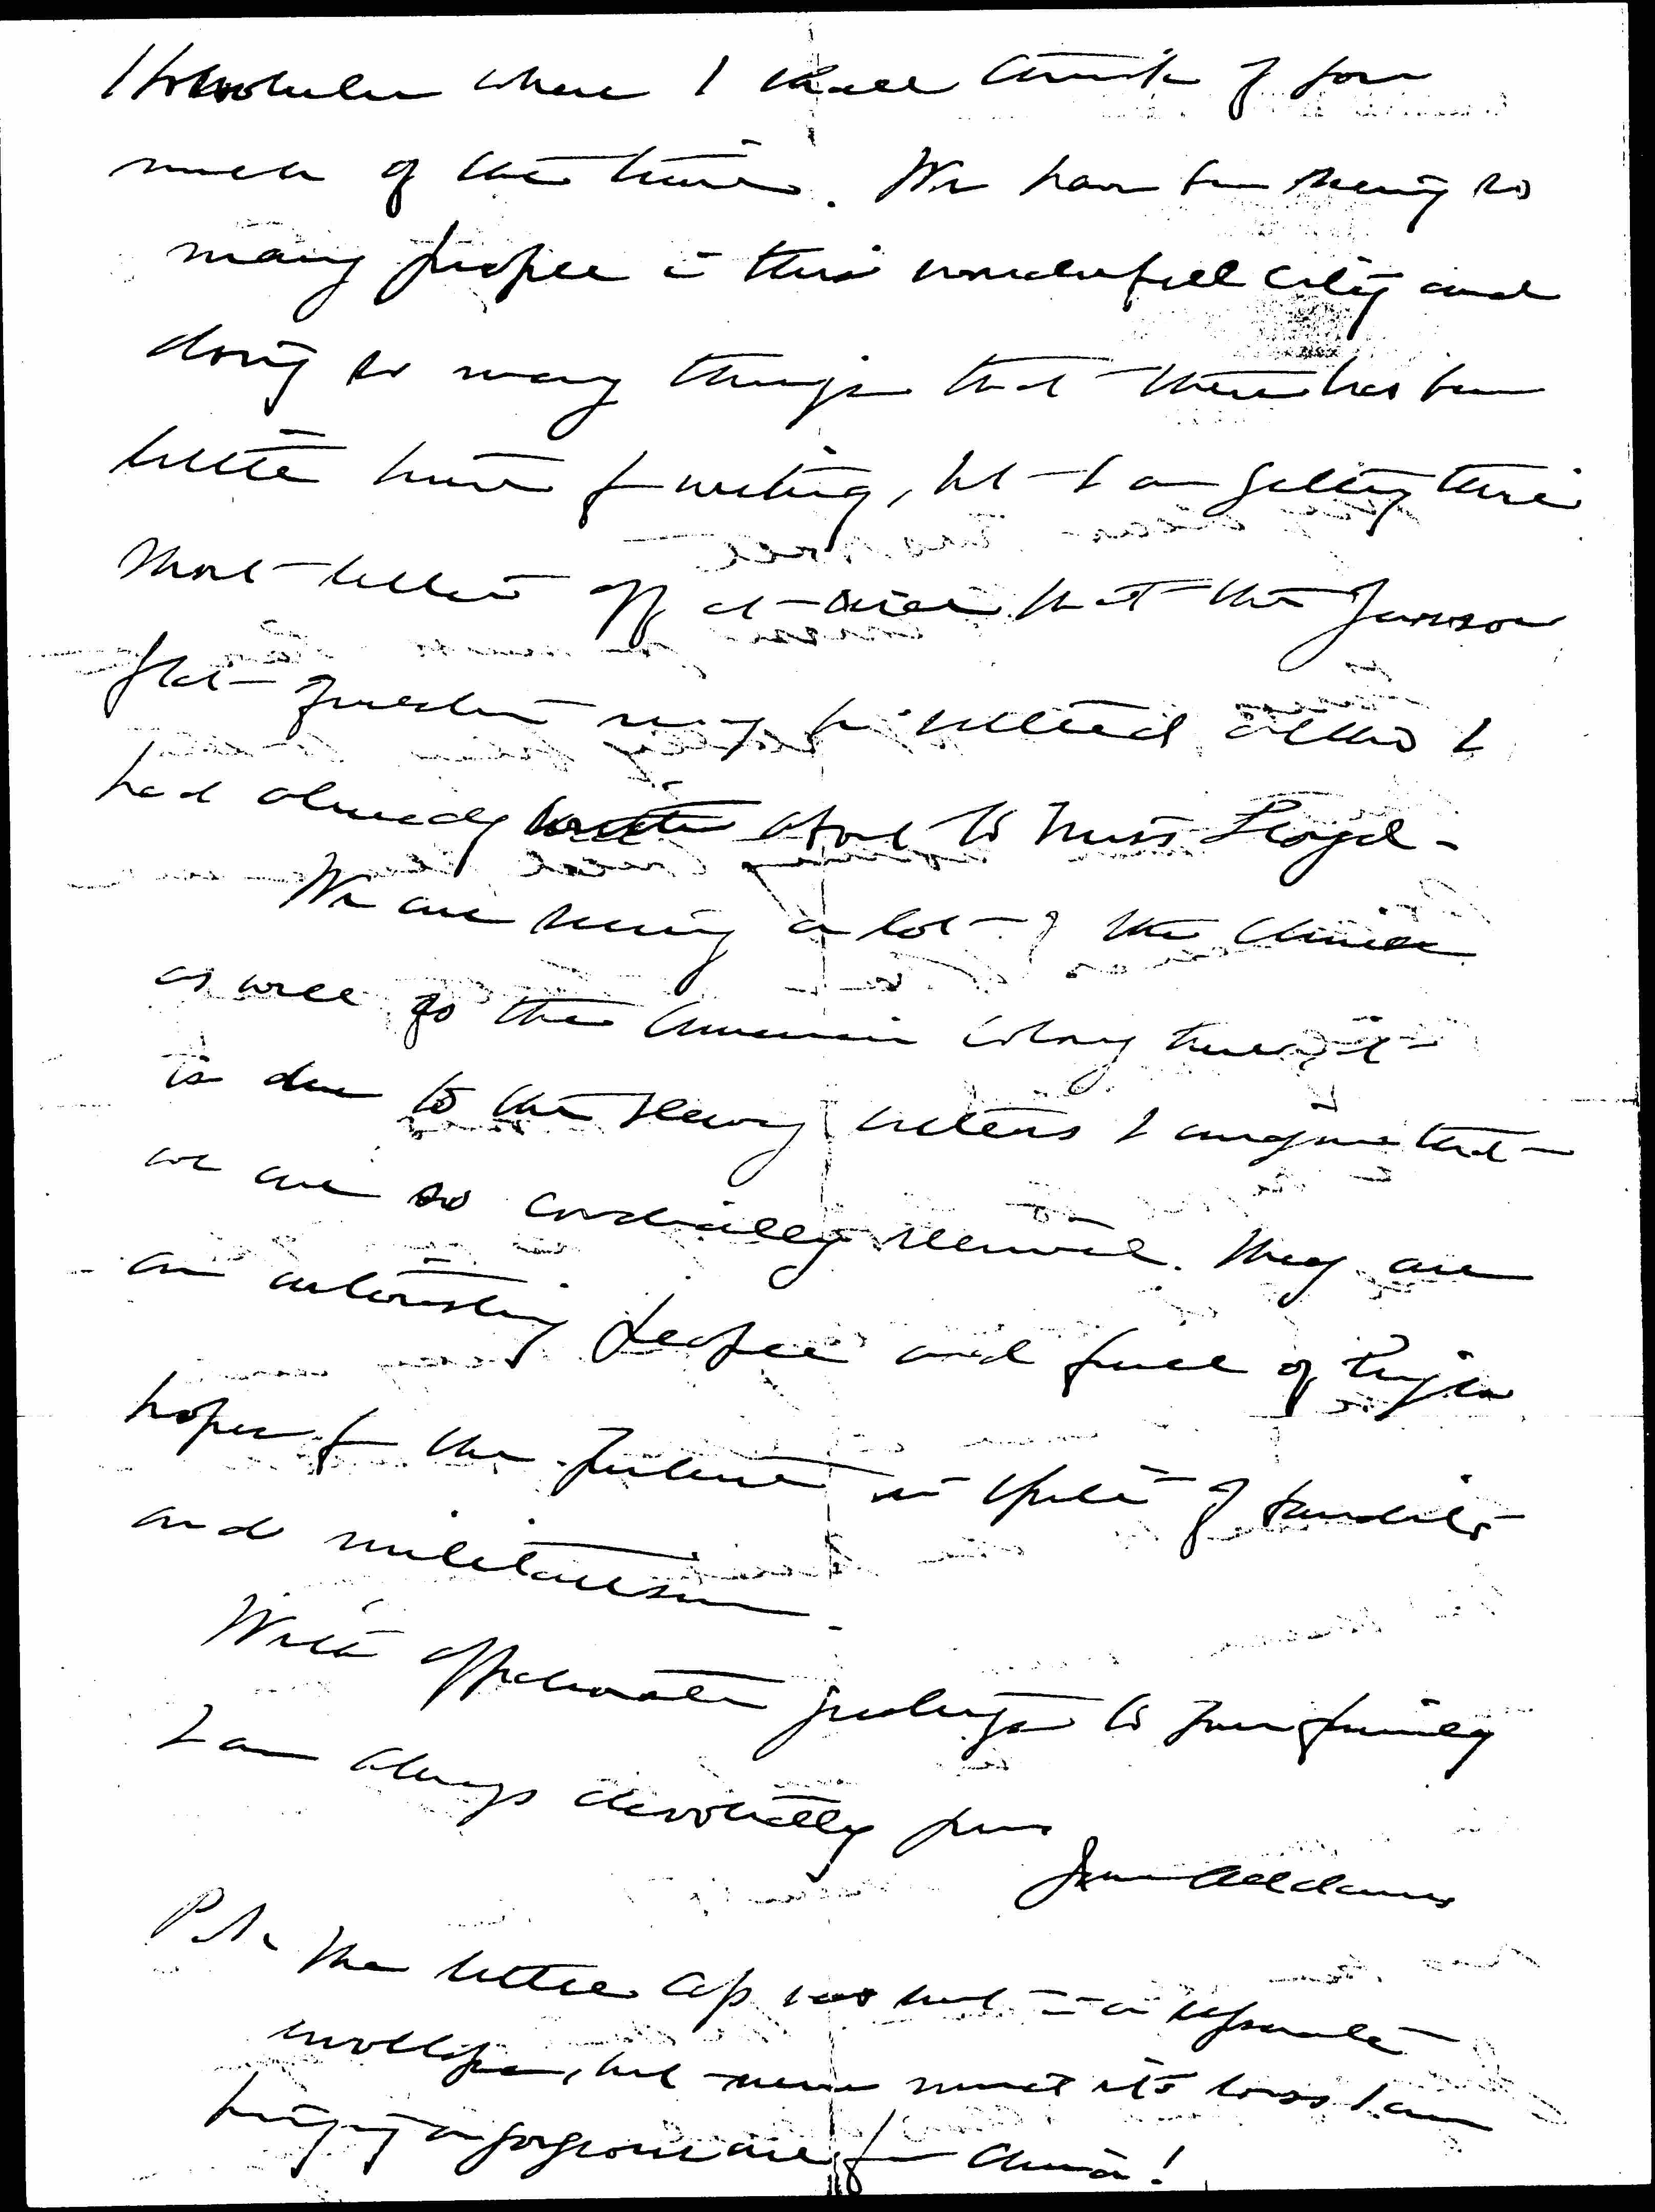 Honolulu where I shall think of you
much of the time. We have been seeing so
many people in this wonderful city and
doing so many things that there has been
little time for writing, but I am getting this
short letter off at once that the
flat question may be settled altho I
had already written about it to Miss Lloyd -
We are seeing a lot of the Chinese
as well as the American Colony here, it
is due to the letters I imagine that
we are so cordially received. They are
an interesting people and full of
hopes for the future in spite of bandits
and militarism.
With affectionate greetings to your family
I am always devotedly yours
Jane Addams
P.S. The little cap was sent in a separate
envelope, but never mind its loss I am
bringing a gorgeous one from China!